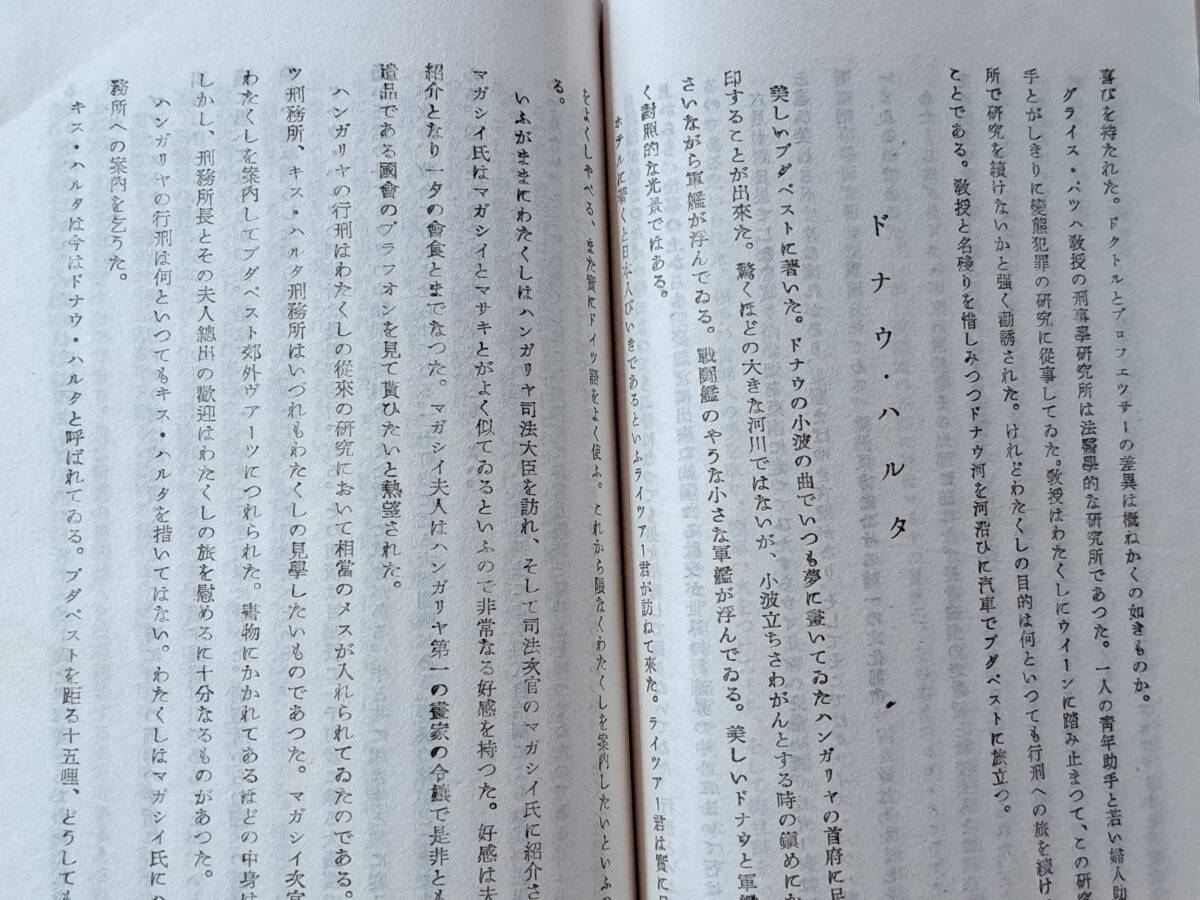 喜びを持たれた。ドクトルとプロフエツサーの差異は概ねかくの如きものか。
グライス・パツハ教授の刑事學研究所は法醫學的な研究所であつた。一人の青年助手と若い婦人助
手とがしきりに變態犯罪の研究に從事してゐた。教授はわたくしにウイーンに踏み止まつて、この研究
所で研究を續けないかと强く勸誘された。けれどわたくしの目的は何といつても行刑への旅を續け
ことである。敎授と名殘りを惜しみつつドナウ河を河沿ひに汽車でブダペストに旅立つ。
ドナウ・ハルタ
美しいブダペストに著いた。ドナウの小波の曲でいつも夢に畫いてゐたハンガリヤの首府に足
印することが出來た。驚くほどの大きな河川ではないが、小波立ちさわがんとする時の鎭めにか
さいながら軍艦が浮んでゐる。戰鬪艦のやうな小さな軍艦が浮んでゐる。美しいドナウと軍艦
く對照的な光景ではある。
ホテルに著くと日本人びいきであるといふライツアー君が訪ねて來た。ライツアー君は實に日
をよくしやべる、また實にドイツ語をよく使ふ。これから隈なくわたくしを案內したいといふの
る。
いふがままにわたくしはハンガリヤ司法大臣を訪れ、そして司法次官のマガシイ氏に紹介さ
マガシイ氏はマガシイとマサキとがよく似てゐるといふので非常なる好感を持つた。好感は夫
紹介となり一夕の會食とまでなつた。マガシイ夫人はハンガリヤ第一の畫家の令孃で是非とも
遺品である國會のプラフオンを見て貰ひたいと熱望された。
ハンガリヤの行刑はわたくしの從來の研究において相當のメスが入れられてゐたのである。
ツ刑務所、キス・ハルタ刑務所はいづれもわたくしの見學したいものであつた。マガシイ次官
わたくしを案內してブダペスト郊外ヴアーツにつれられた。書物にかかれてあるほどの中身は
しかし、刑務所長とその夫人總出の歡迎はわたくしの旅を慰めるに十分なるものがあつた。
ハンガリヤの行刑は何といつてもキス・ハルタを措いてはない。わたくしはマガシイ氏にハ
務所への案內を乞うた。
キス・ハルタは今はドナウ・ハルタと呼ばれてゐる。ブダペストを距る十五哩、どうしても